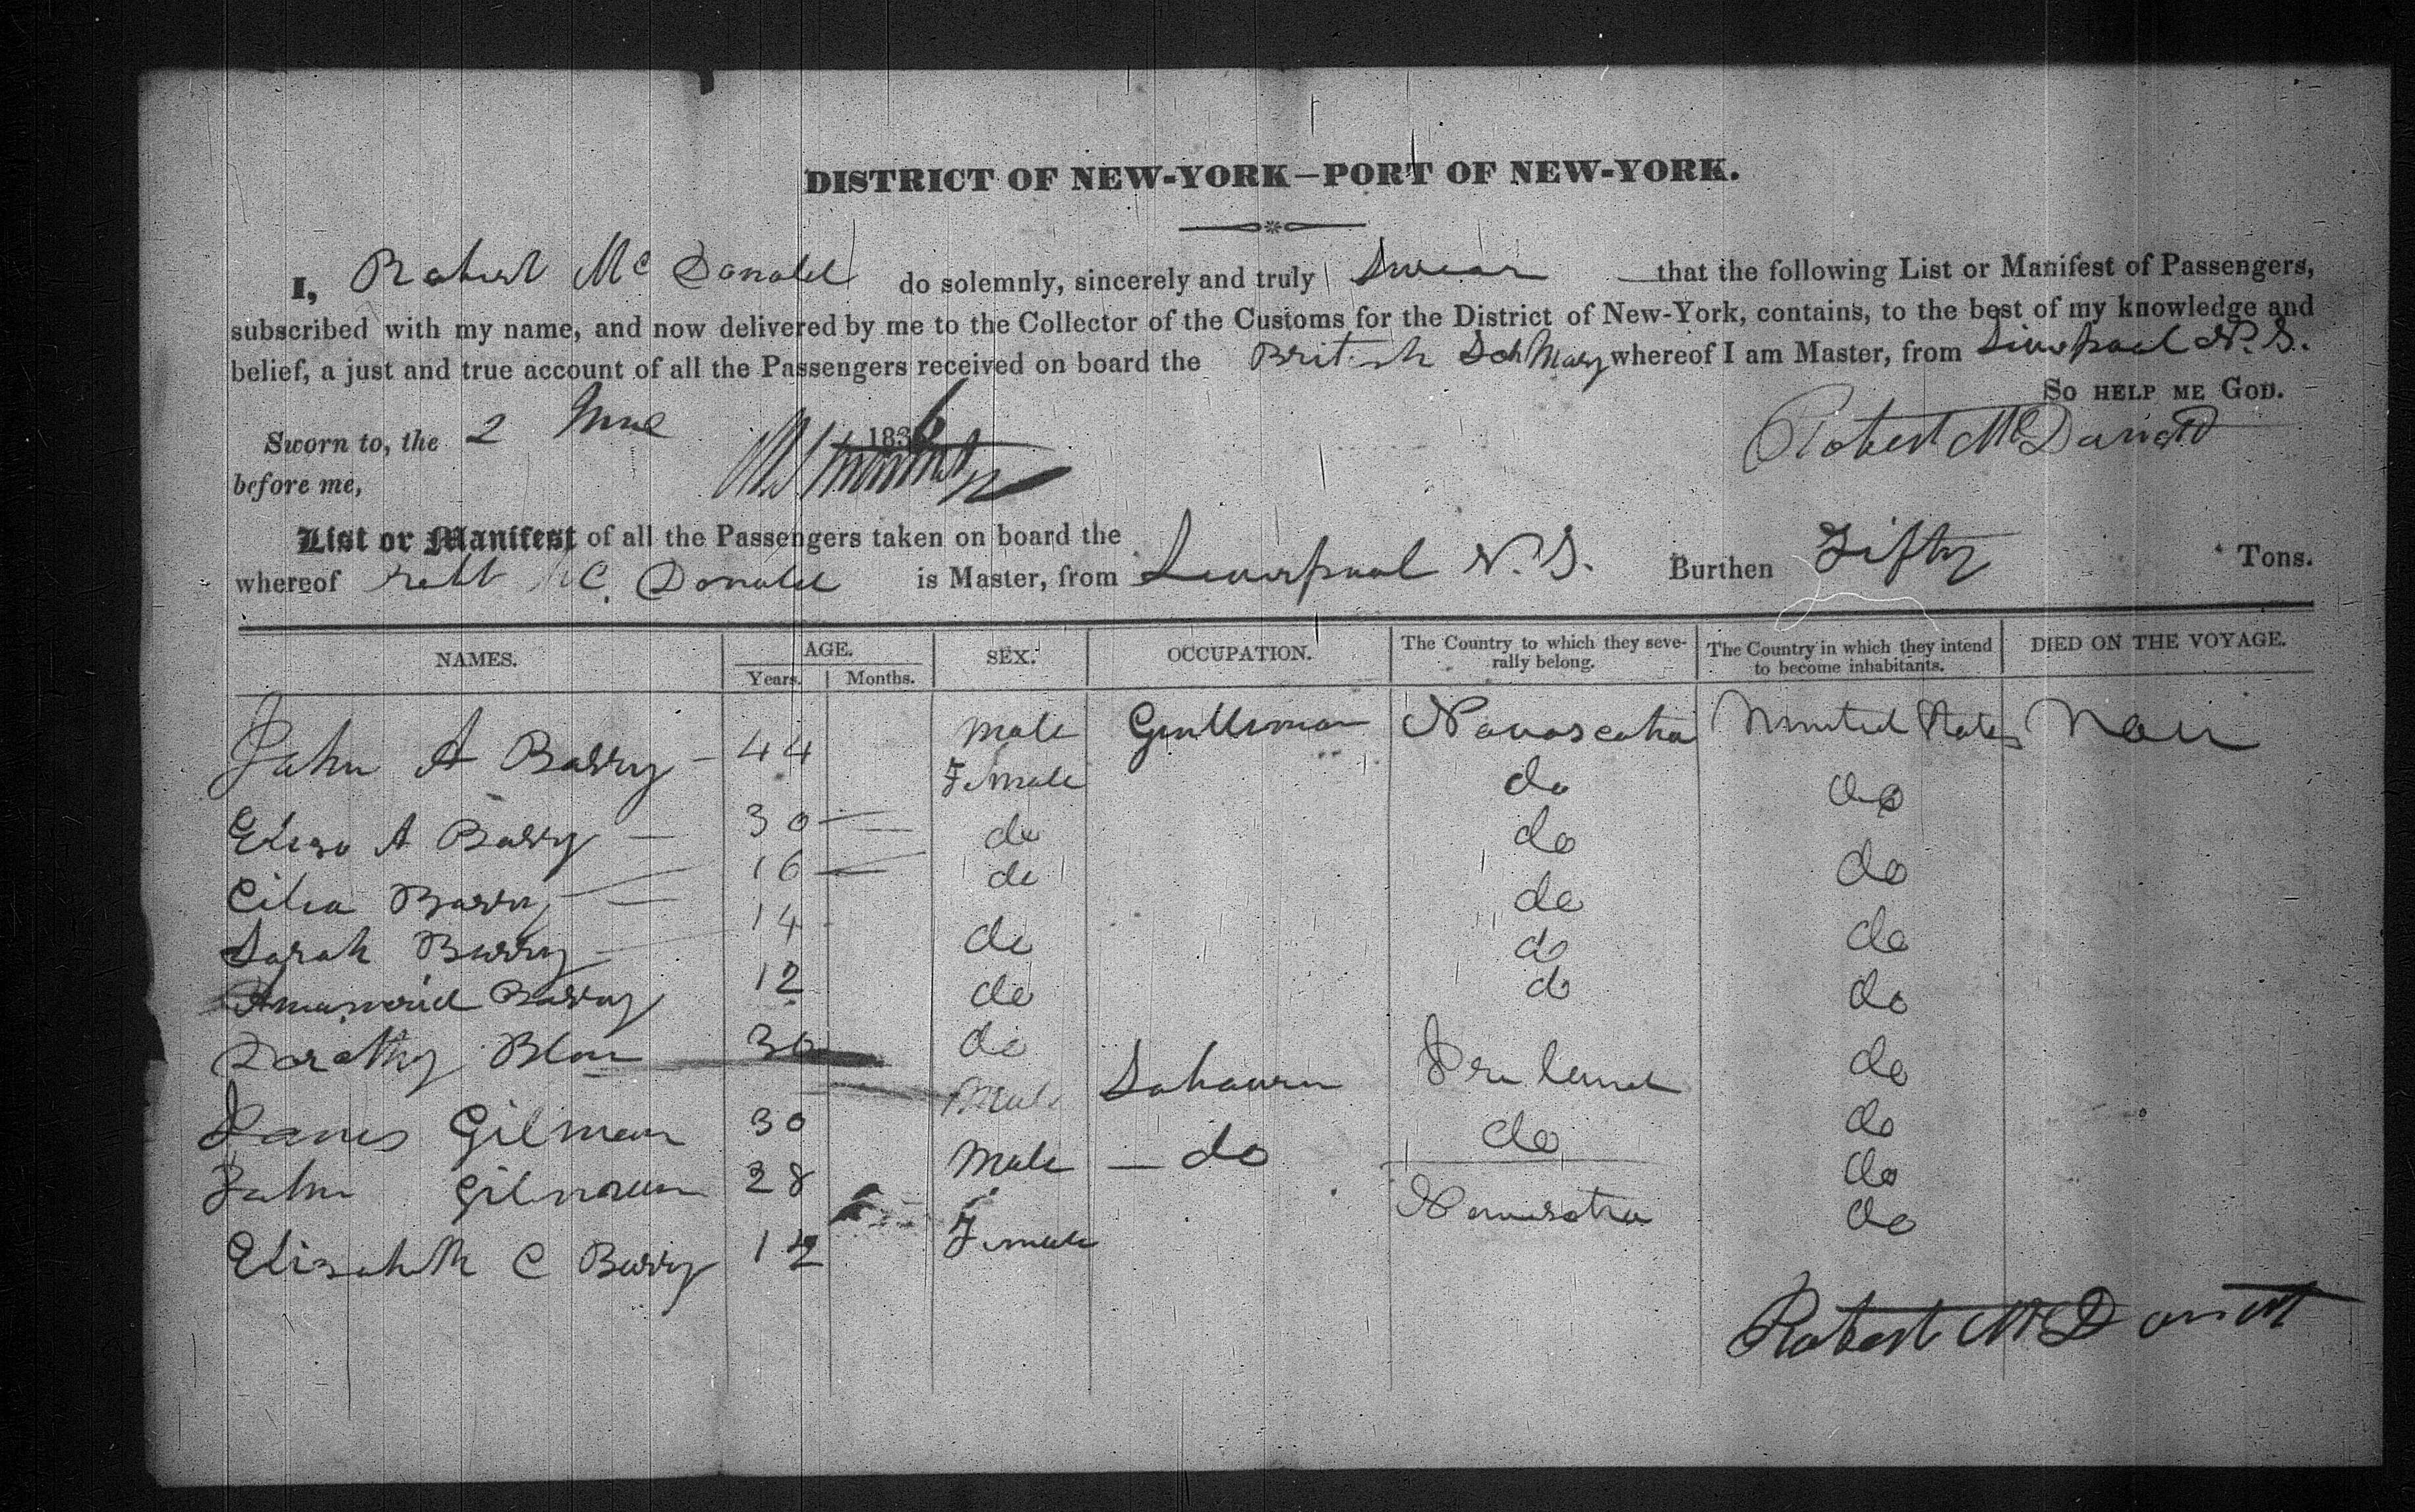 DISTRICT OF NEW-YORK—PORT OF NEW-YORK.
I, Robert Mc Donald do solemnly, sincerely and truly Swear that the following List or Manifest of Passengers,
subscribed with my name, and now delivered by me to the Collector of the Customs for the District of New-York, contains, to the best of my knowledge and
belief, a just and true account of all the Passengers received on board the British Sch Mary whereof I am Master, from Liverpool N. S.
So HELP ME GOD.
Sworn to, the 2 1836
Robert McDonald
before me,
List or Manifest of all the Passengers taken on board the
whereof Robt Mc. Donald is Master, from Liverpool N. S. Burthen Fifty Tons.
NAMES. AGE. SEX. OCCUPATION. The Country to which they seve- The Country in which they intend DIED ON THE VOYAGE.
Years. Months. rally belong. to become inhabitants.
John A Barry 44 Male Gentleman Novascotia United States
Eliza A Barry 30 Female do do
Barry 16 do do do
Sarah Barry 14 de de do
Barry 12 de do do
Dorathy 30 de do do
James Gilman 30 Male Ireland do
John Gilman 28 Male do do do
Elizabeth C Barry 12 Female do
Robert McDonald